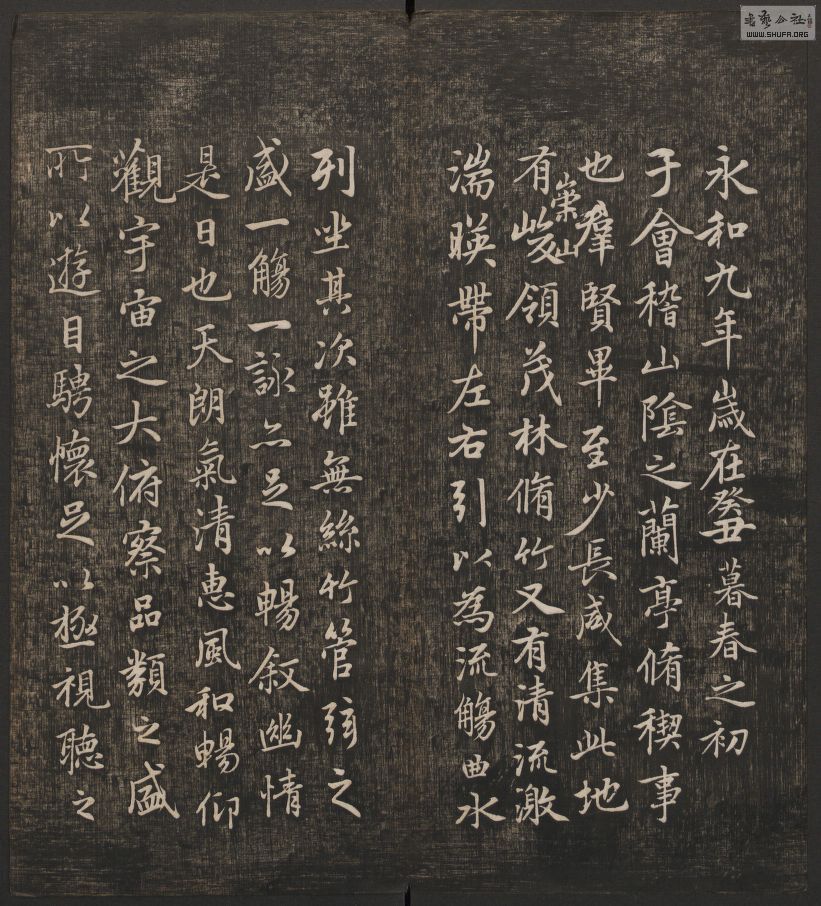 永和九年歲在癸丑暮春之初
于會稽山陰之蘭亭脩稧事
也羣賢畢至少長咸集此地
有崇山峻領茂林脩竹又有清流激
湍暎帶左右引以為流觴曲水
列坐其次雖無絲竹管弦之
盛一觴一詠亦足以暢叙幽情
是日也天朗氣清惠風和暢仰
觀宇宙之大俯察品類之盛
所以遊目騁懷足以極視聽之
書藝公社
WWW.SHUFA.ORG